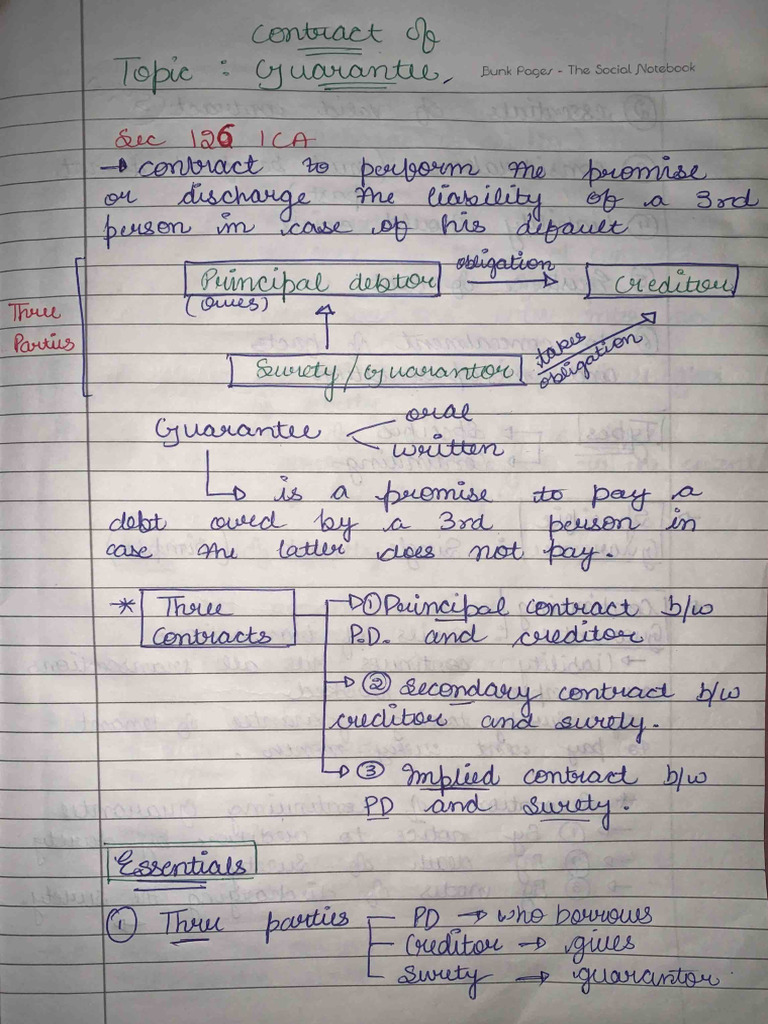 Contract of
Topic : Guarantee.
Bunk Pages - The Social Notebook
Sec 126 ICA
→ contract to perform the promise
or discharge the liability of a 3rd
person in case of his default
Three
Parties
Principal debtor
(owes)
obligation
Creditor
Surety/Guarantor
takes
obligation
Guarantee
oral
written
is a promise to pay a
debt owed by a 3rd person in
case the latter does not pay.
* Three
Contracts
① Principal contract b/w
P.D. and creditor
② Secondary contract b/w
creditor and surety.
③ Implied contract b/w
PD and Surety.
Essentials
① Three parties
PD → who borrows
Creditor → gives
Surety → guarantor